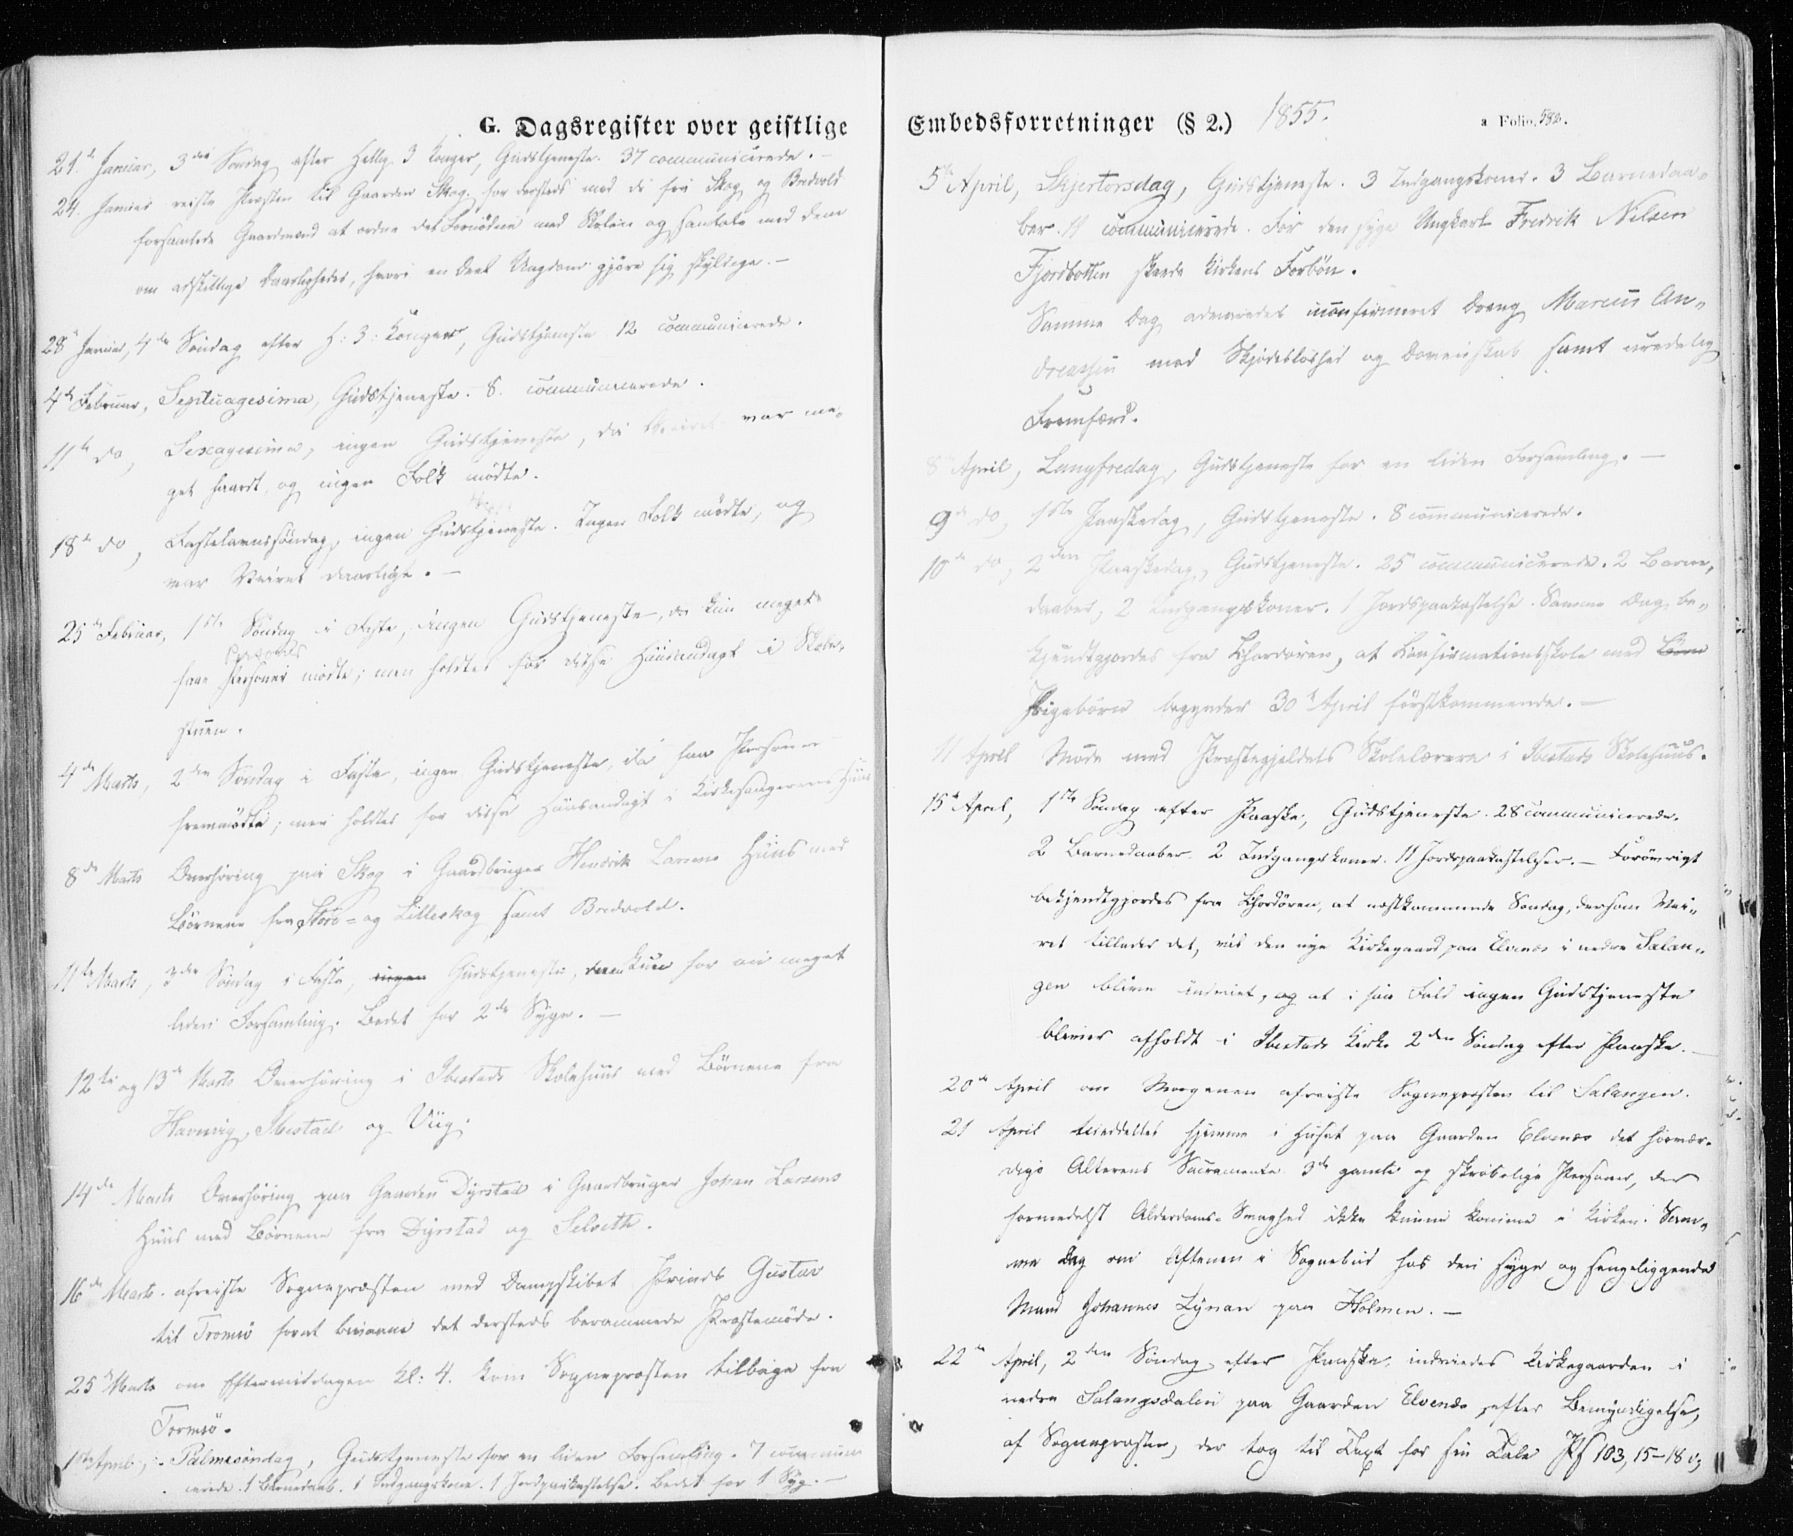 G. Dagsregister over geistlige
21de Januar, 3die Søndag efter Hellig 3 Konger, Gudstjeneste. 37 communicerede. —
24. Januar reiste Præsten til Gaarden Skog, for dersteds med de fra Skog og Bredvold
forsamlede Gaardmænd at ordne det Fornødne med Skolen og samtale med dem
om adskillige Daarligheder, hvori en Deel Ungdom gjøre sig skyldige. —
28de Januar, 4de Søndag efter H: 3: Konger, Gudstjeneste 12 communicerede.
4de Februar, Septuagesima, Gudstjeneste. 8. communicerede.
11te do, Sexagesima, ingen Gudstjeneste, da Veiret var me-
get haardt, og ingen Folk mødte.
18de do, Fastelavnssøndag, ingen Gudstjeneste. Ingen Folk mødte, og
var Veiret daarligt. —
25de Februar, 1ste Søndag i Faste, ingen Gudstjeneste, da kun meget
Personer
faae Personer mødte; men holdtes for disse Huusandagt i Skole-
stuen.
4de Marts, 2den Søndag i Faste, ingen Gudstjeneste, da faa Personer
fremmødte; men holdtes for disse Huusandagt i Kirkesangerens Huus
8de Marts Overhøring paa Skog i Gaardbruger Hendrik Larsens Huus med
Børnene fra Store- og Lilleskog samt Bredvold.
11te Marts, 3die Søndag i Faste, ingen Gudstjeneste, kun for en meget
liden Forsamling. Bedet for 2de Syge. —
12te og 13de Marts Overhøring i Ibestads Skolehuus med Børnene fra
Hamvig, Ibestad og Viig.
14de Marts Overhøring paa Gaarden Dyrstad i Gaardbruger Johan Larsens
Huus med Børnene fra Dyrstad og Selseth.
16de Marts afreiste Sognepræsten med Dampskibet Prinds Gustav
til Tromsø for at bivaane det dersteds berammede Præstemøde.
25de Marts om Eftermiddagen Kl: 4. kom Sognepræsten tilbage fra
Tromsø.
1ste April, Palmesøndag, Gudstjeneste for en liden Forsamling. 7 commun-
icerede. 1 Barnedaab. 1 Indgangskone. 1 Jordpaakastelse. Bedet for 1 Syg. —
Embedsforretninger (§ 2.) 1855. a Folio.
5te April, Skjertorsdag, Gudstjeneste. 3 Indgangskoner. 3 Barnedaa-
ber. 11 communicerede. For den syge Ungkarl Fredrik Nilsen
Fjordbotten skeede Kirkens Forbøn.
Samme Dag advaredes uconfirmeret Dreng Marcus An-
dreassen med Skjødesløshed og Dovenskab samt usædelig
Fremfærd.
8de April, Langfredag, Gudstjeneste for en liden Forsamling. —
9de do, 1ste Paaskedag, Gudstjeneste. 8 communicerede.
10de do, 2den Paaskedag, Gudstjeneste. 25 communicerede. 2 Barne-
daaber, 2 Indgangskoner. 1 Jordspaakastelse. Samme Dag be-
kjendtgjordes fra Chordøren, at Konfirmationsskole med Børn
Pigebørn begynder 30te April førstkommende. —
11 April Møde med Præstegjeldets Skolelærere i Ibestads Skolehuus.
15de April, 1ste Søndag efter Paaske, Gudstjeneste. 28 communicerede.
2 Barnedaaber. 2 Indgangskoner. 11 Jordpaakastelser. — Forøvrigt
bekjendtgjordes fra Chordøren, at næstkommende Søndag, dersom Vei-
ret tillader det, vil den nye Kirkegaard paa Elvenæs i nedre Salan-
gen blive indviet, og at i saa Fald ingen Gudstjeneste
bliver afholdt i Ibestads Kirke 2den Søndag efter Paaske. —
20de April om Morgenen afreiste Sognepræsten til Salangen.
21 April meddeltes hjemme i Huset paa Gaarden Elvenæs det høivær-
dige Alterens Sacramente 3de gamle og skrøbelige Personer, der
formedelst Alderdoms-Svaghed ikke kunne komme i Kirken. Sam-
me Dag om Aftenen i Sognebud hos den syge og sengeliggende
Mand Johannes Lynan paa Holmen. —
22de April, 2den Søndag efter Paaske, indviedes Kirkegaarden i
nedre Salangsdalen paa Gaarden Elvenæs, efter Bemyndigelse,
af Sognepræsten, der tog til Text for sin Tale Ps 103, 15-18